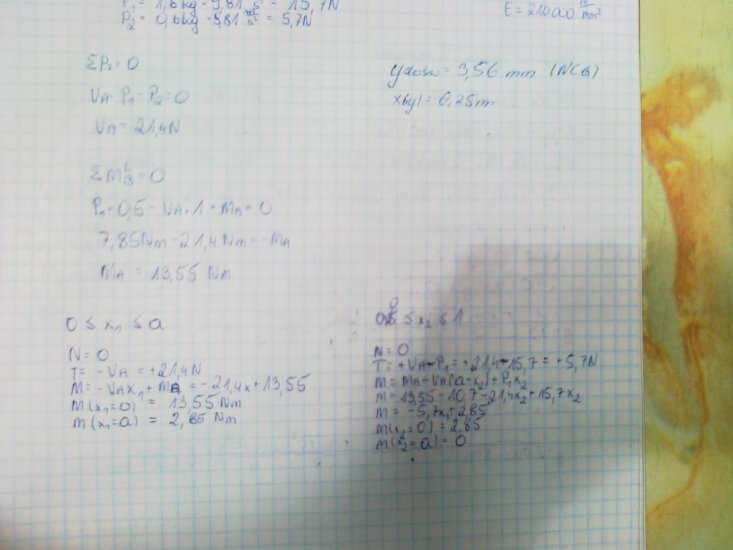 P₁ = 1,6kg · 9,81 m/s² = 15,7N
P₂ = 0,6kg · 9,81 m/s² = 5,7N
E = 210000 N/mm²
ΣPᵢ = 0
VA - P₁ - P₂ = 0
VA = 21,4N
= 3,56 mm
= 0,25m
ΣM = 0
P₁ · 0,5 - VA · 1 + MA = 0
7,85Nm - 21,4Nm = -MA
MA = 13,55 Nm
0 ≤ x₁ ≤ a
N = 0
T = - VA = +21,4N
M = -VAx₁ + MA = -21,4x + 13,55
M(x₁=0) = 13,55Nm
M(x₁=a) = 2,85 Nm
≤ x₂ ≤ 1
N = 0
T = +VA - P₁ = +21,4 - 15,7 = +5,7N
M = MA - VA(a-x₂) + P₁x₂
M = 13,55 - 10,7 - 21,4x₂ + 15,7x₂
M = -5,7x₂ + 2,85
M(x₂=0) = 2,85
M(x₂=a) = 0